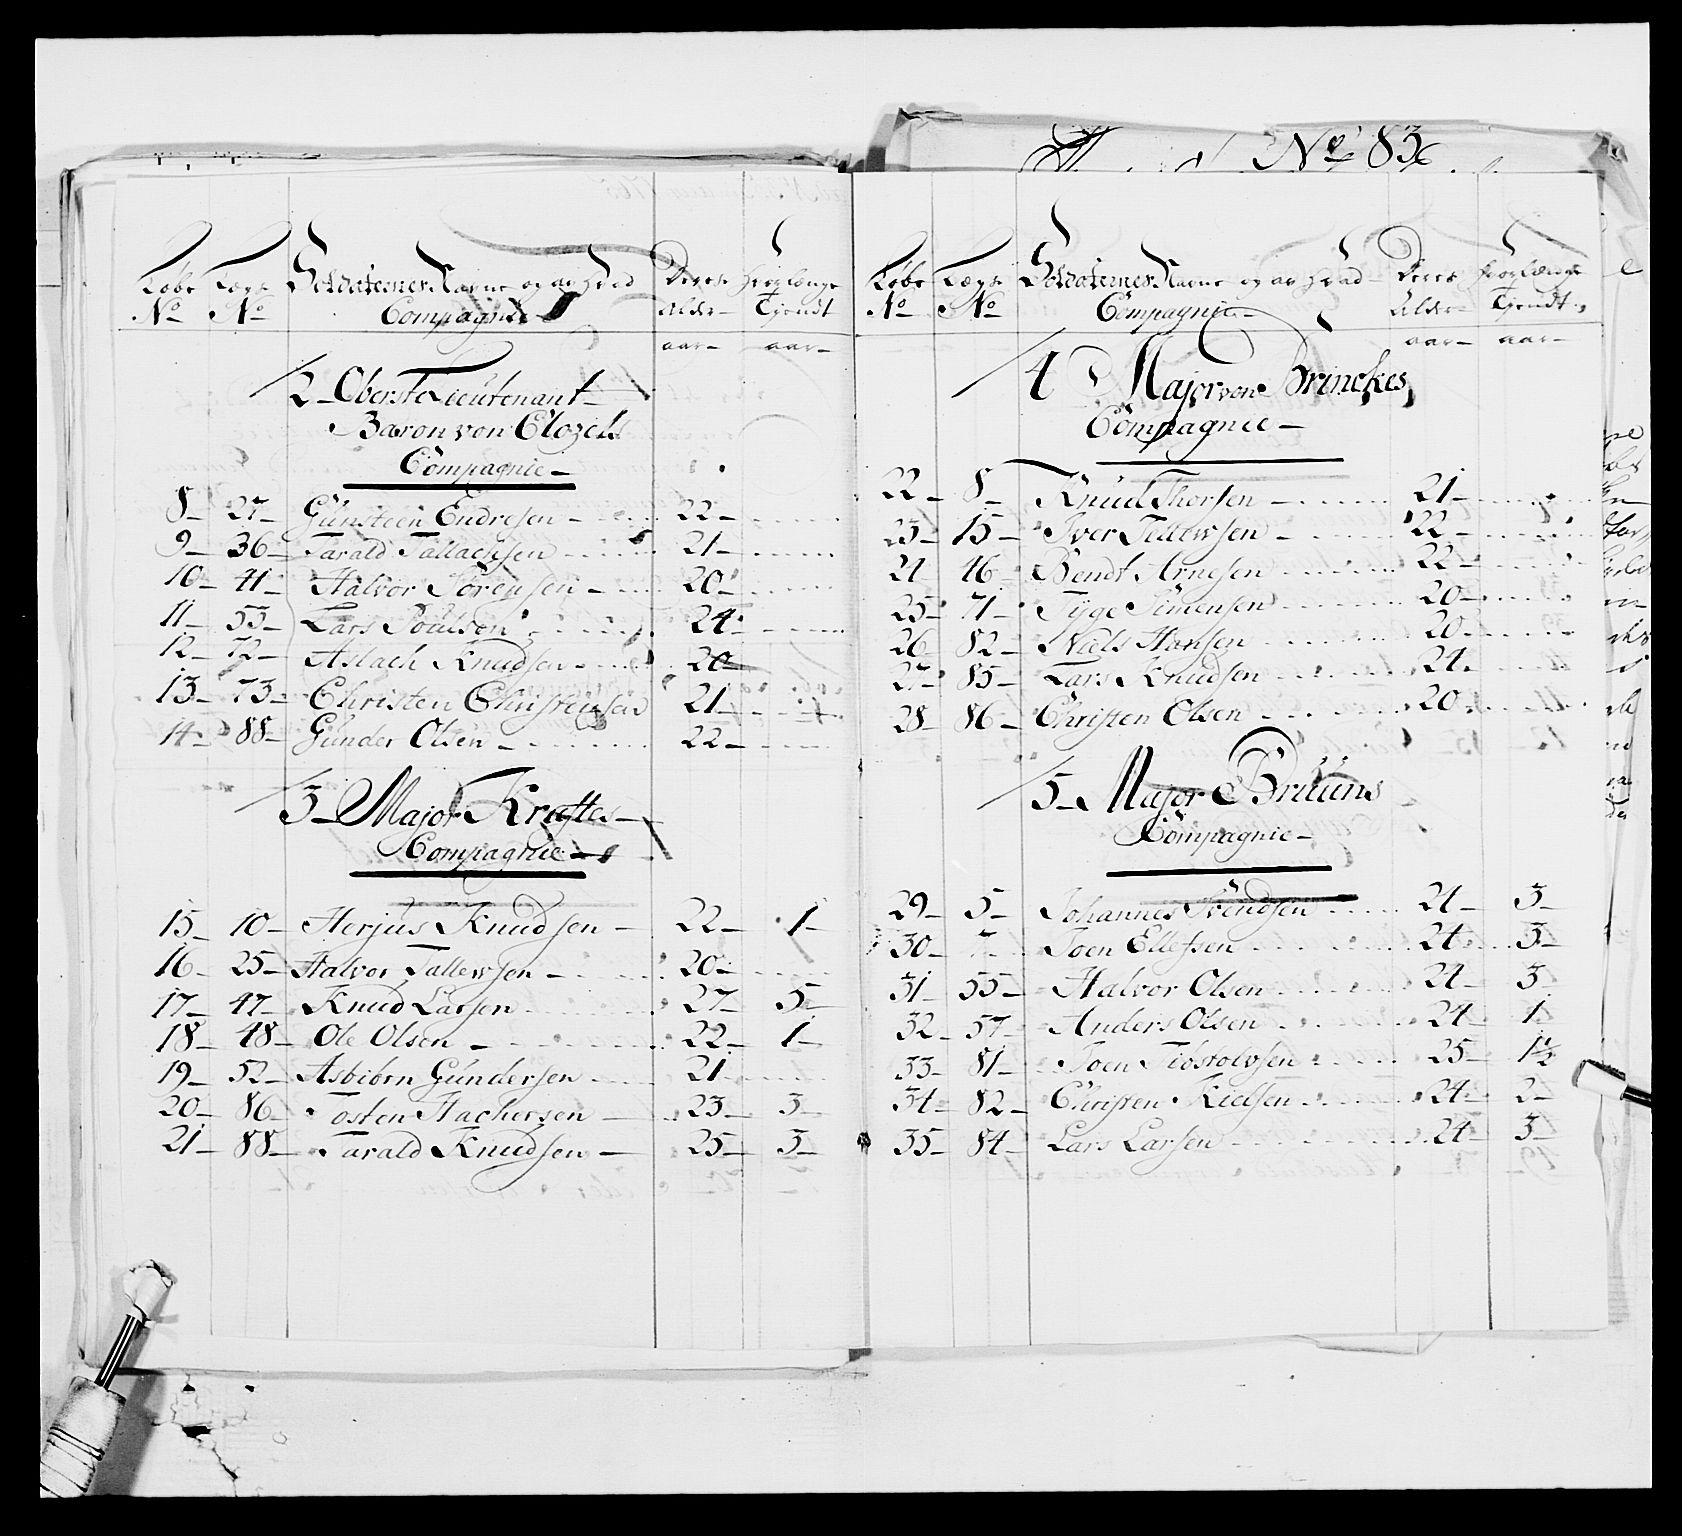 No 83
Løbe No Lægs No Soldaternes Navne og av hvad Compagnie Deres Alder Hvorlænge Tjendt
aar aar
2 Oberst Lieutenant
Baron von
Compagnie
8 27 Gunsteen Endresen 22
9 36 Tarald Tallachsen 21
10 41 Halvor Sørensen 20
11 53 Lars Poulsen 24
12 72 Aslach Knudsen 20
13 73 Christen Christensen 21
14 88 Gunder Olsen 22
3 Major Krafts
Compagnie
15 10 Herjus Knudsen 22 1
16 25 Halvor Tallevsen 20
17 47 Knud Larsen 27 5
18 48 Ole Olsen 22 1
19 52 Asbiørn Gundersen 21
20 86 Tosten 23 3
21 88 Tarald Knudsen 25 3
Løbe No Lægs No Soldaternes Navne og av hvad Compagnie Deres Alder Hvorlænge Tjendt
aar aar
4 Major von Brinckes
Compagnie
22 8 Knud Thorsen 21
23 15 Iver Tellevsen 22
24 46 Bendt Arnesen 22
25 71 Tyge Simensen 20
26 82 Niels Hansen 20
27 85 Lars Knudsen 24
28 86 Christen Olsen 20
5 Major Bruuns
Compagnie
29 5 Johannes Svendsen 24 3
30 7 Joen Ellefsen 24 3
31 55 Halvor Olsen 24 3
32 57 Anders Olsen 24 1
33 81 Joen 25 1½
34 82 Christen Kielsen 24 2
35 84 Lars Larsen 24 3